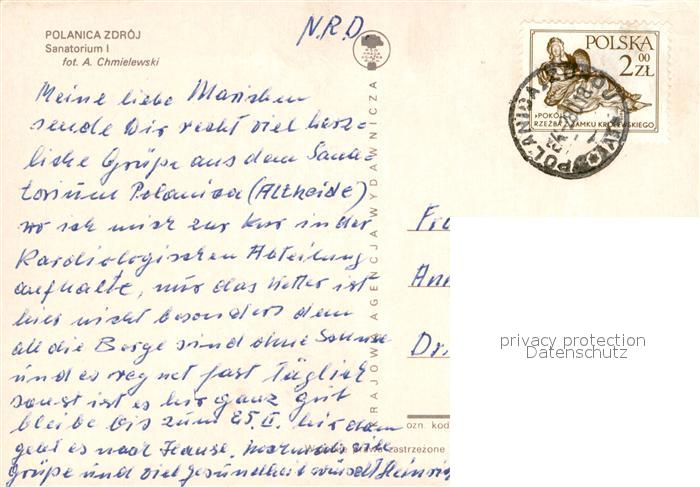 POLANICA ZDRÓJ
Sanatorium I
fot. A. Chmielewski
N.R.D.
POLSKA
2 00 ZŁ
»POKÓJ«
RZEŹBA Z ZAMKU KRÓLEWSKIEGO
POLANICA-ZDRÓJ
Meine liebe Mariechen
sende Dir recht viel herz-
liche Grüße aus dem Sana-
torium Polanica (Altheide)
wo ich mich zur Kur in der
Kardiologischen Abteilung
aufhalte, nur das Wetter ist
hier nicht besonders denn
all die Berge sind ohne Sonne
und es regnet fast täglich
sonst ist es hir ganz gut
bleibe bis zum 25.II. hir dann
geht es nach Hause. nochmals viele
grüße und viel gesundheit wünscht Heinrich
KRAJOWA AGENCJA WYDAWNICZA
Fr
An
Dr.
ozn. kod
zastrzeżone
privacy protection
Datenschutz